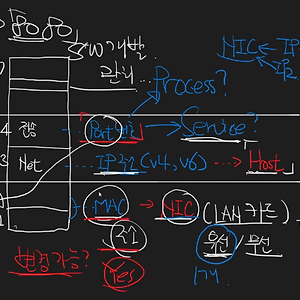 S/W 개발
관리...
NIC ← IP
IP2
Process?
4 전송 Port 번호 → Service?
3 Net IP 주소 (v4, v6) ⇢ Host
MAC → NIC (LAN 카드)
주소 유선 / 무선
변경가능? Yes 1개